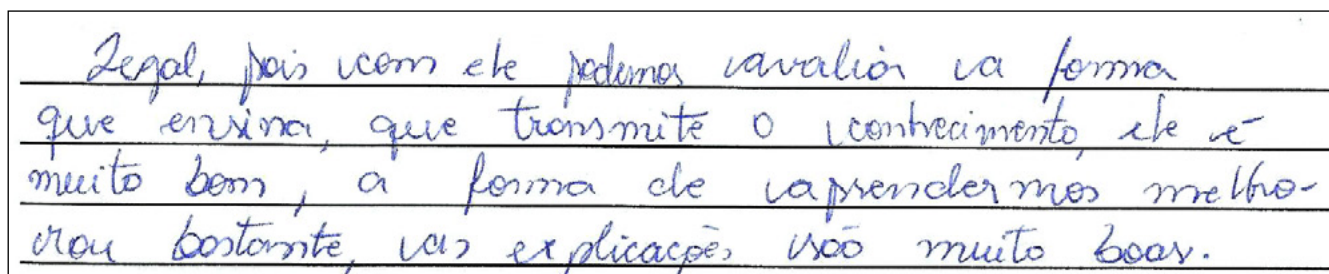 Legal, pois com ele podemos avaliar a forma
que ensina, que transmite o conhecimento, ele é
muito bom, a forma de aprendermos melho-
rou bastante, as explicações são muito boas.